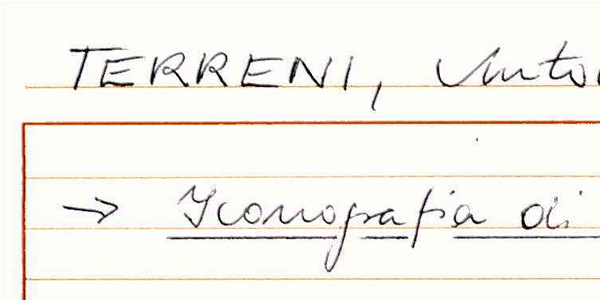 TERRENI, Anto
→ Iconografia di